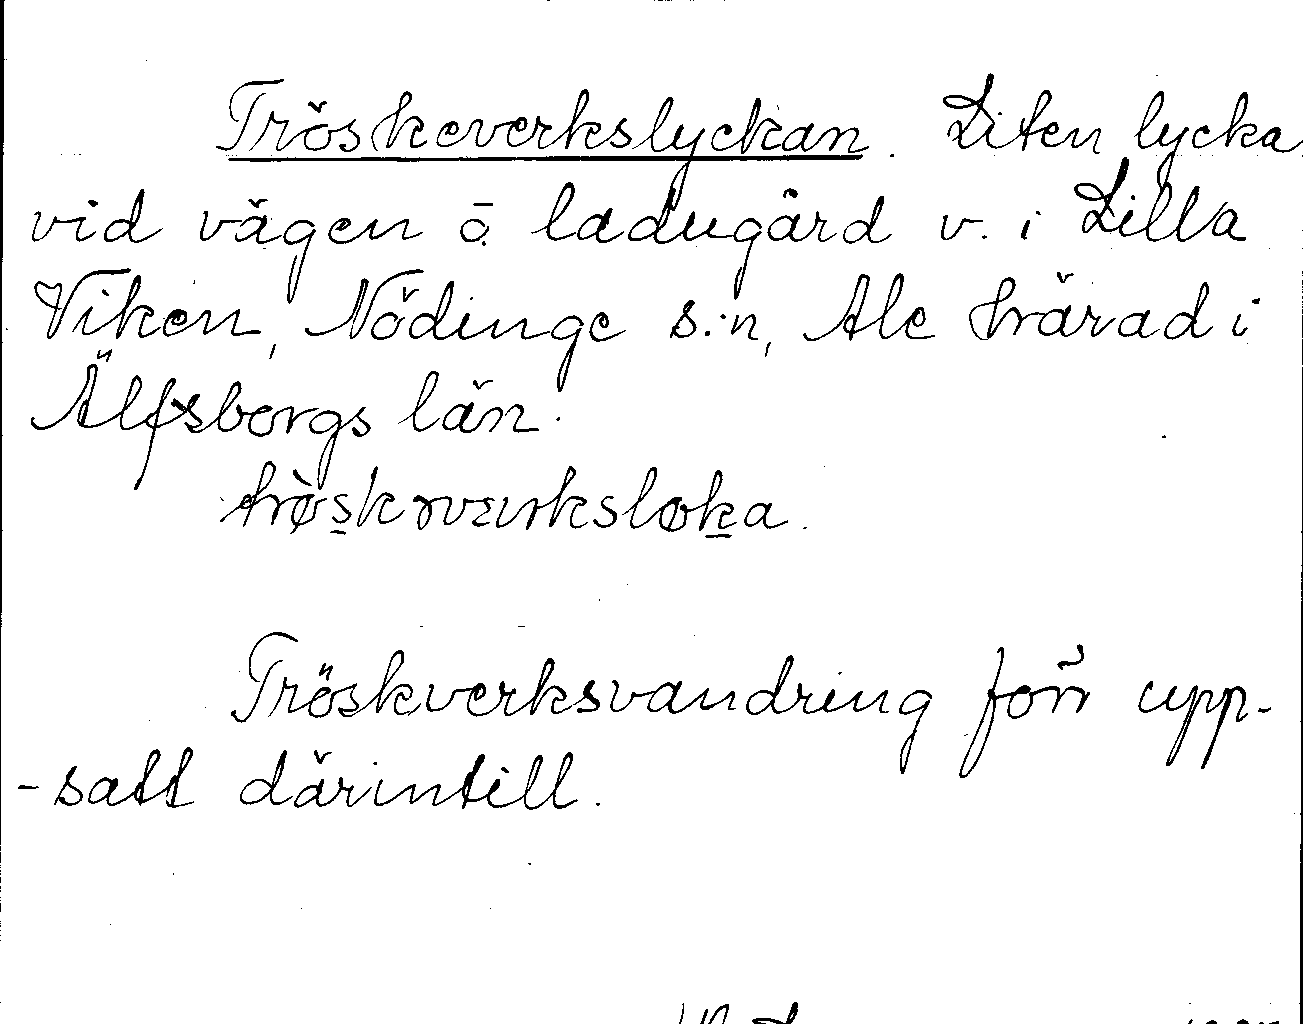 Tröskeverkslyckan. Liten lycka
vid vägen ö. ladugård v. i Lilla
Viken, Nödinge s:n, Ale härad i
Älfsborgs län.
trøskəværksløka.
Tröskverksvandring förr upp-
-satt därintill.